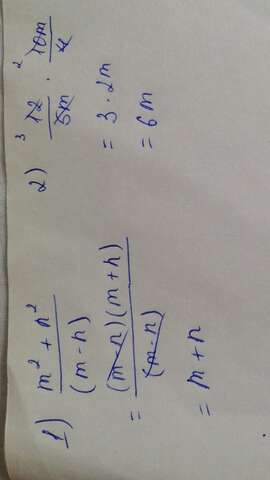 1) m² + n² / (m - n)
= (m - n)(m + n) / (m - n)
= m + n
2) ³12 / 5m · ²10m / 4
= 3 · 2m
= 6m